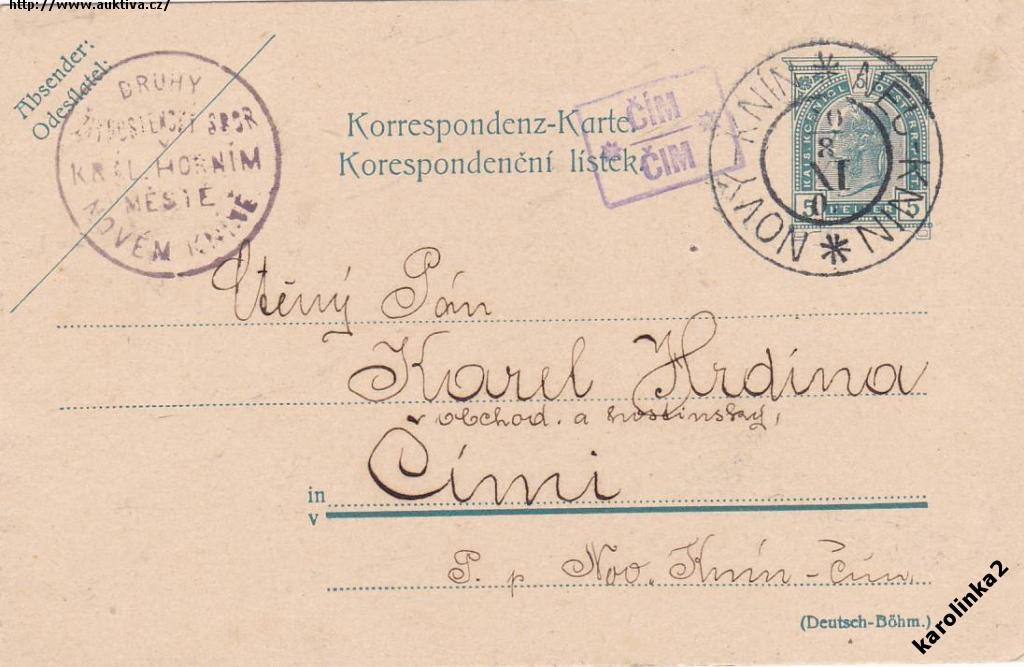 http://www.auktiva.cz/
Absender:
Odesílatel:
DRUHÝ
SBOR
KRÁL. HORNÍM
MĚSTĚ
NOVÉM KNÍNĚ
Korrespondenz-Karte.
Korespondenční lístek.
ČÍM
ČIM
NEU-KNIN
NOVÝ KNÍN
5 HELLER 5
Ctěný Pán
Karel Hrdina
obchod. a hostinský,
in
v
Čími
P. p Nov. Knín - Čím
(Deutsch-Böhm.)
karolinka2